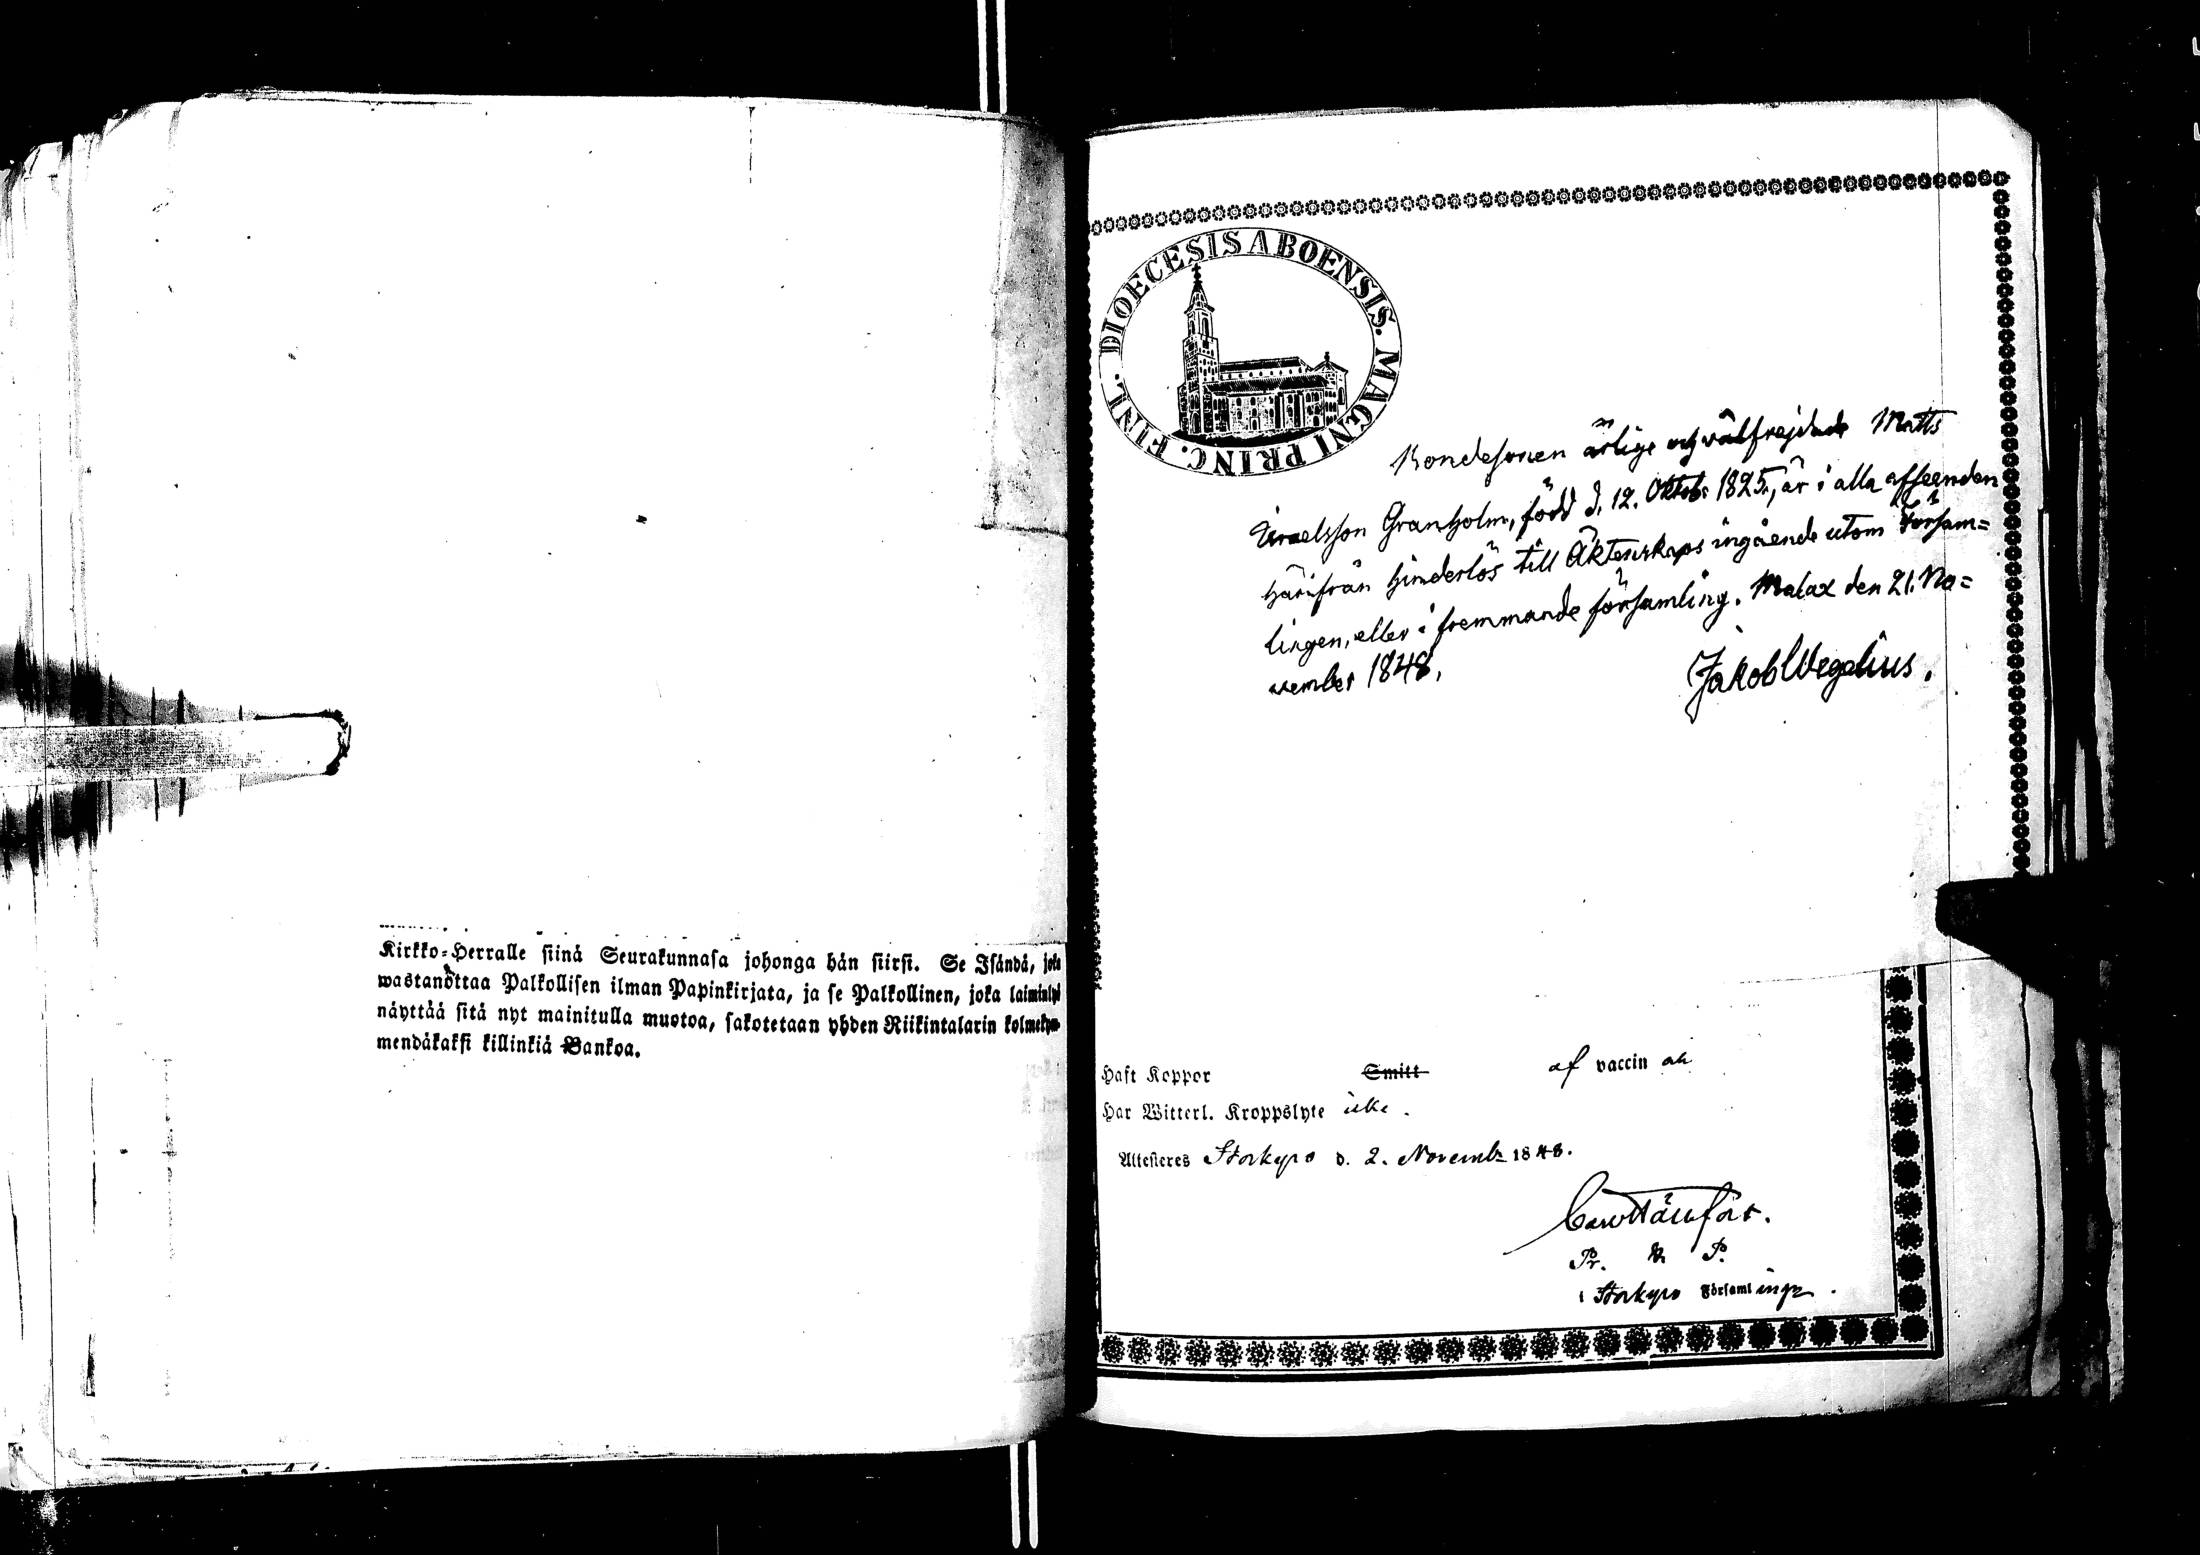 Kirkko-Herralle siinä Seurakunnasa johonga hän siirsi. Se Isändä, joka
wastanottaa Palkollisen ilman Papinkirjata, ja se Palkollinen, joka laiminlyö
näyttää sitä nyt mainitulla muotoa, sakotetaan yhden Riikintalarin kolmekym-
mendäkaksi killinkiä Bankoa.
DIOECESIS ABOENSIS. MAGNI PRINC. FINL.
Bondesonen ärlige och välfrejdade Matts
Israelsson Granholm, född d. 12. Oktob. 1825, är i alla afseenden
härifrån hinderlös till Äktenskaps ingående utom Försam=
lingen, eller i fremmande församling. Malax den 21. No=
vember 1848.
Jakob Wegelius.
Haft Koppor Smitt af vaccin
Har Witterl. Kroppslyte icke.
Attesteres Storkyro d. 2. Novemb. 1848.
Pr. P.
i Storkyro Församlinge.